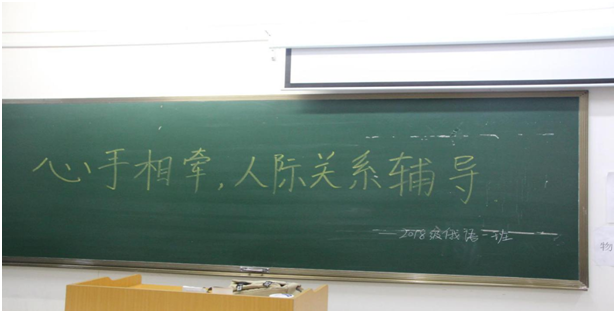 心手相牵，人际关系辅导
——2018级俄语一班
物